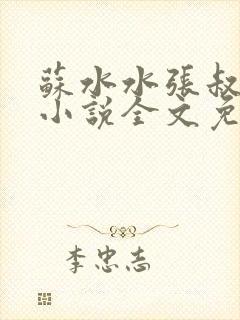 蘇水水張叔
小說全文免
李忠志